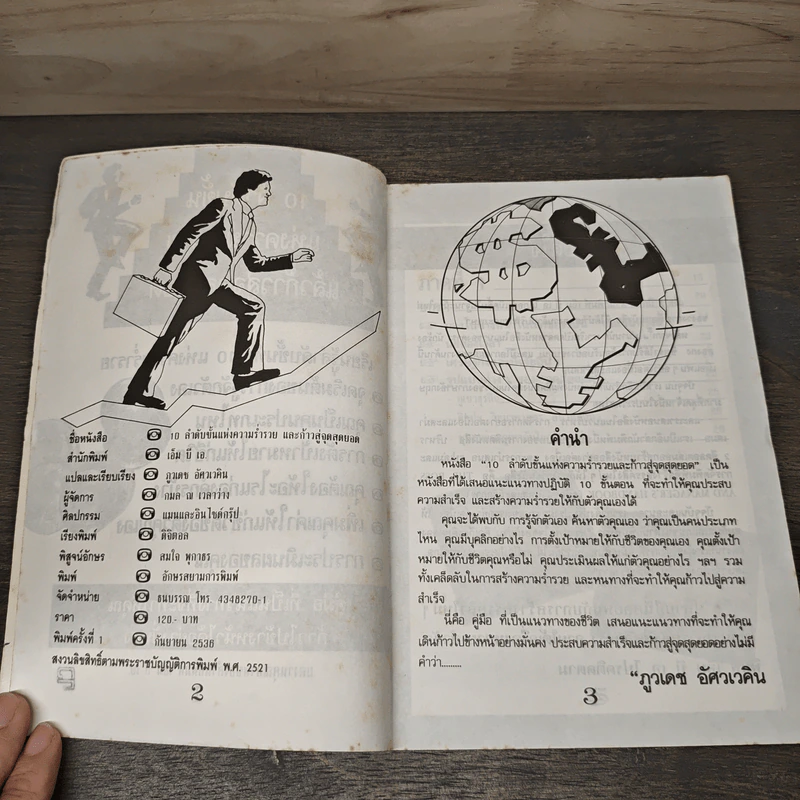 ชื่อหนังสือ ☎ 10 ลำดับขั้นแห่งความร่ำรวย และก้าวสู่จุดสุดยอด
สำนักพิมพ์ ☎ เอ็ม บี เอ
แปลและเรียบเรียง ☎ ภูวเดช อัศวเวคิน
ผู้จัดการ ☎ กมล ณ เวลาว่าง
ศิลปกรรม ☎ แมนแอนอินไซด์กรุ๊ป
เรียงพิมพ์ ☎ ดิจิตอล
พิสูจน์อักษร ☎ สมใจ
พิมพ์ ☎ อักษรสยามการพิมพ์
จัดจำหน่าย ☎ ธนบรรณ โทร. 4348270-1
ราคา ☎ 120.- บาท
พิมพ์ครั้งที่ 1 ☎ กันยายน 2536
สงวนลิขสิทธิ์ตามพระราชบัญญัติการพิมพ์ พ.ศ. 2521
2
คำนำ
หนังสือ “10 ลำดับขั้นแห่งความร่ำรวยและก้าวสู่จุดสุดยอด” เป็น
หนังสือที่ได้เสนอแนะแนวทางปฏิบัติ 10 ขั้นตอน ที่จะทำให้คุณประสบ
ความสำเร็จ และสร้างความร่ำรวยให้กับตัวคุณเองได้
คุณจะได้พบกับ การรู้จักตัวเอง ค้นหาตัวคุณเอง ว่าคุณเป็นคนประเภท
ไหน คุณมีบุคลิกอย่างไร การตั้งเป้าหมายให้กับชีวิตของคุณเอง คุณตั้งเป้า
หมายให้กับชีวิตคุณหรือไม่ คุณประเมินผลให้แก่ตัวคุณอย่างไร ฯลฯ รวม
ทั้งเคล็ดลับในการสร้างความร่ำรวย และหนทางที่จะทำให้คุณก้าวไปสู่ความ
สำเร็จ
นี่คือ คู่มือ ที่เป็นแนวทางของชีวิต เสนอแนะแนวทางที่จะทำให้คุณ
เดินก้าวไปข้างหน้าอย่างมั่นคง ประสบความสำเร็จและก้าวสู่จุดสุดยอดอย่างไม่มี
คำว่า.........
“ภูวเดช อัศวเวคิน
3